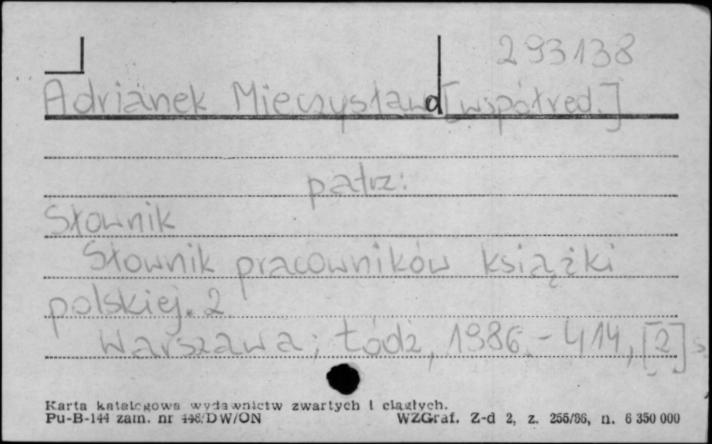 293138
Adrianek Mieczysław d [współred.]
patrz:
Słownik
Słownik pracowników książki
polskiej. 2
Warszawa; Łódź, 1986. - 414, [2] s
Karta katalogowa wydawnictw zwartych i ciągłych.
Pu-B-144 zam. nr 446/DW/ON WZGraf. Z-d 2, z. 255/86, n. 6 350 000